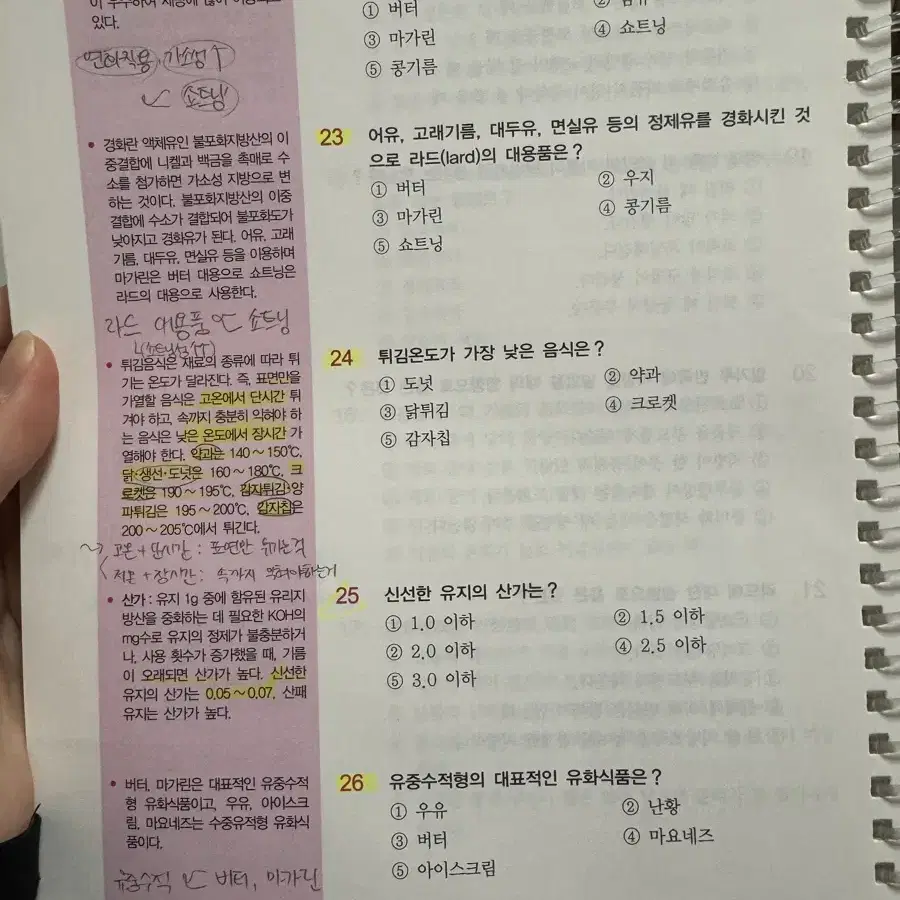 있다.
연화작용, 가소성↑
쇼트닝
• 경화란 액체유인 불포화지방산의 이
중결합에 니켈과 백금을 촉매로 수
소를 첨가하면 가소성 지방으로 변
하는 것이다. 불포화지방산의 이중
결합에 수소가 결합되어 불포화도가
낮아지고 경화유가 된다. 어유, 고래
기름, 대두유, 면실유 등을 이용하며
마가린은 버터 대용으로 쇼트닝은
라드의 대용으로 사용한다.
라드 대용품 쇼트닝
• 튀김음식은 재료의 종류에 따라 튀
기는 온도가 달라진다. 즉, 표면만을
가열할 음식은 고온에서 단시간 튀
겨야 하고, 속까지 충분히 익혀야 하
는 음식은 낮은 온도에서 장시간 가
열해야 한다. 약과는 140～150℃,
닭·생선·도넛은 160～180℃, 크
로켓은 190～195℃, 감자튀김·양
파튀김은 195～200℃, 감자칩은
200～205℃에서 튀긴다.
고온+단시간 : 표면만 튀기는것
저온+장시간 : 속까지 익혀야하는거
• 산가 : 유지 1g 중에 함유된 유리지
방산을 중화하는 데 필요한 KOH의
mg수로 유지의 정제가 불충분하거
나, 사용 횟수가 증가했을 때, 기름
이 오래되면 산가가 높다. 신선한
유지의 산가는 0.05～0.07, 산패
유지는 산가가 높다.
• 버터, 마가린은 대표적인 유중수적
형 유화식품이고, 우유, 아이스크
림, 마요네즈는 수중유적형 유화식
품이다.
유중수적 버터, 마가린
① 버터
③ 마가린 ④ 쇼트닝
⑤ 콩기름
23 어유, 고래기름, 대두유, 면실유 등의 정제유를 경화시킨 것
으로 라드(lard)의 대용품은?
① 버터 ② 우지
③ 마가린 ④ 콩기름
⑤ 쇼트닝
24 튀김온도가 가장 낮은 음식은?
① 도넛 ② 약과
③ 닭튀김 ④ 크로켓
⑤ 감자칩
25 신선한 유지의 산가는?
① 1.0 이하 ② 1.5 이하
② 2.0 이하 ④ 2.5 이하
⑤ 3.0 이하
26 유중수적형의 대표적인 유화식품은?
① 우유 ② 난황
③ 버터 ④ 마요네즈
⑤ 아이스크림